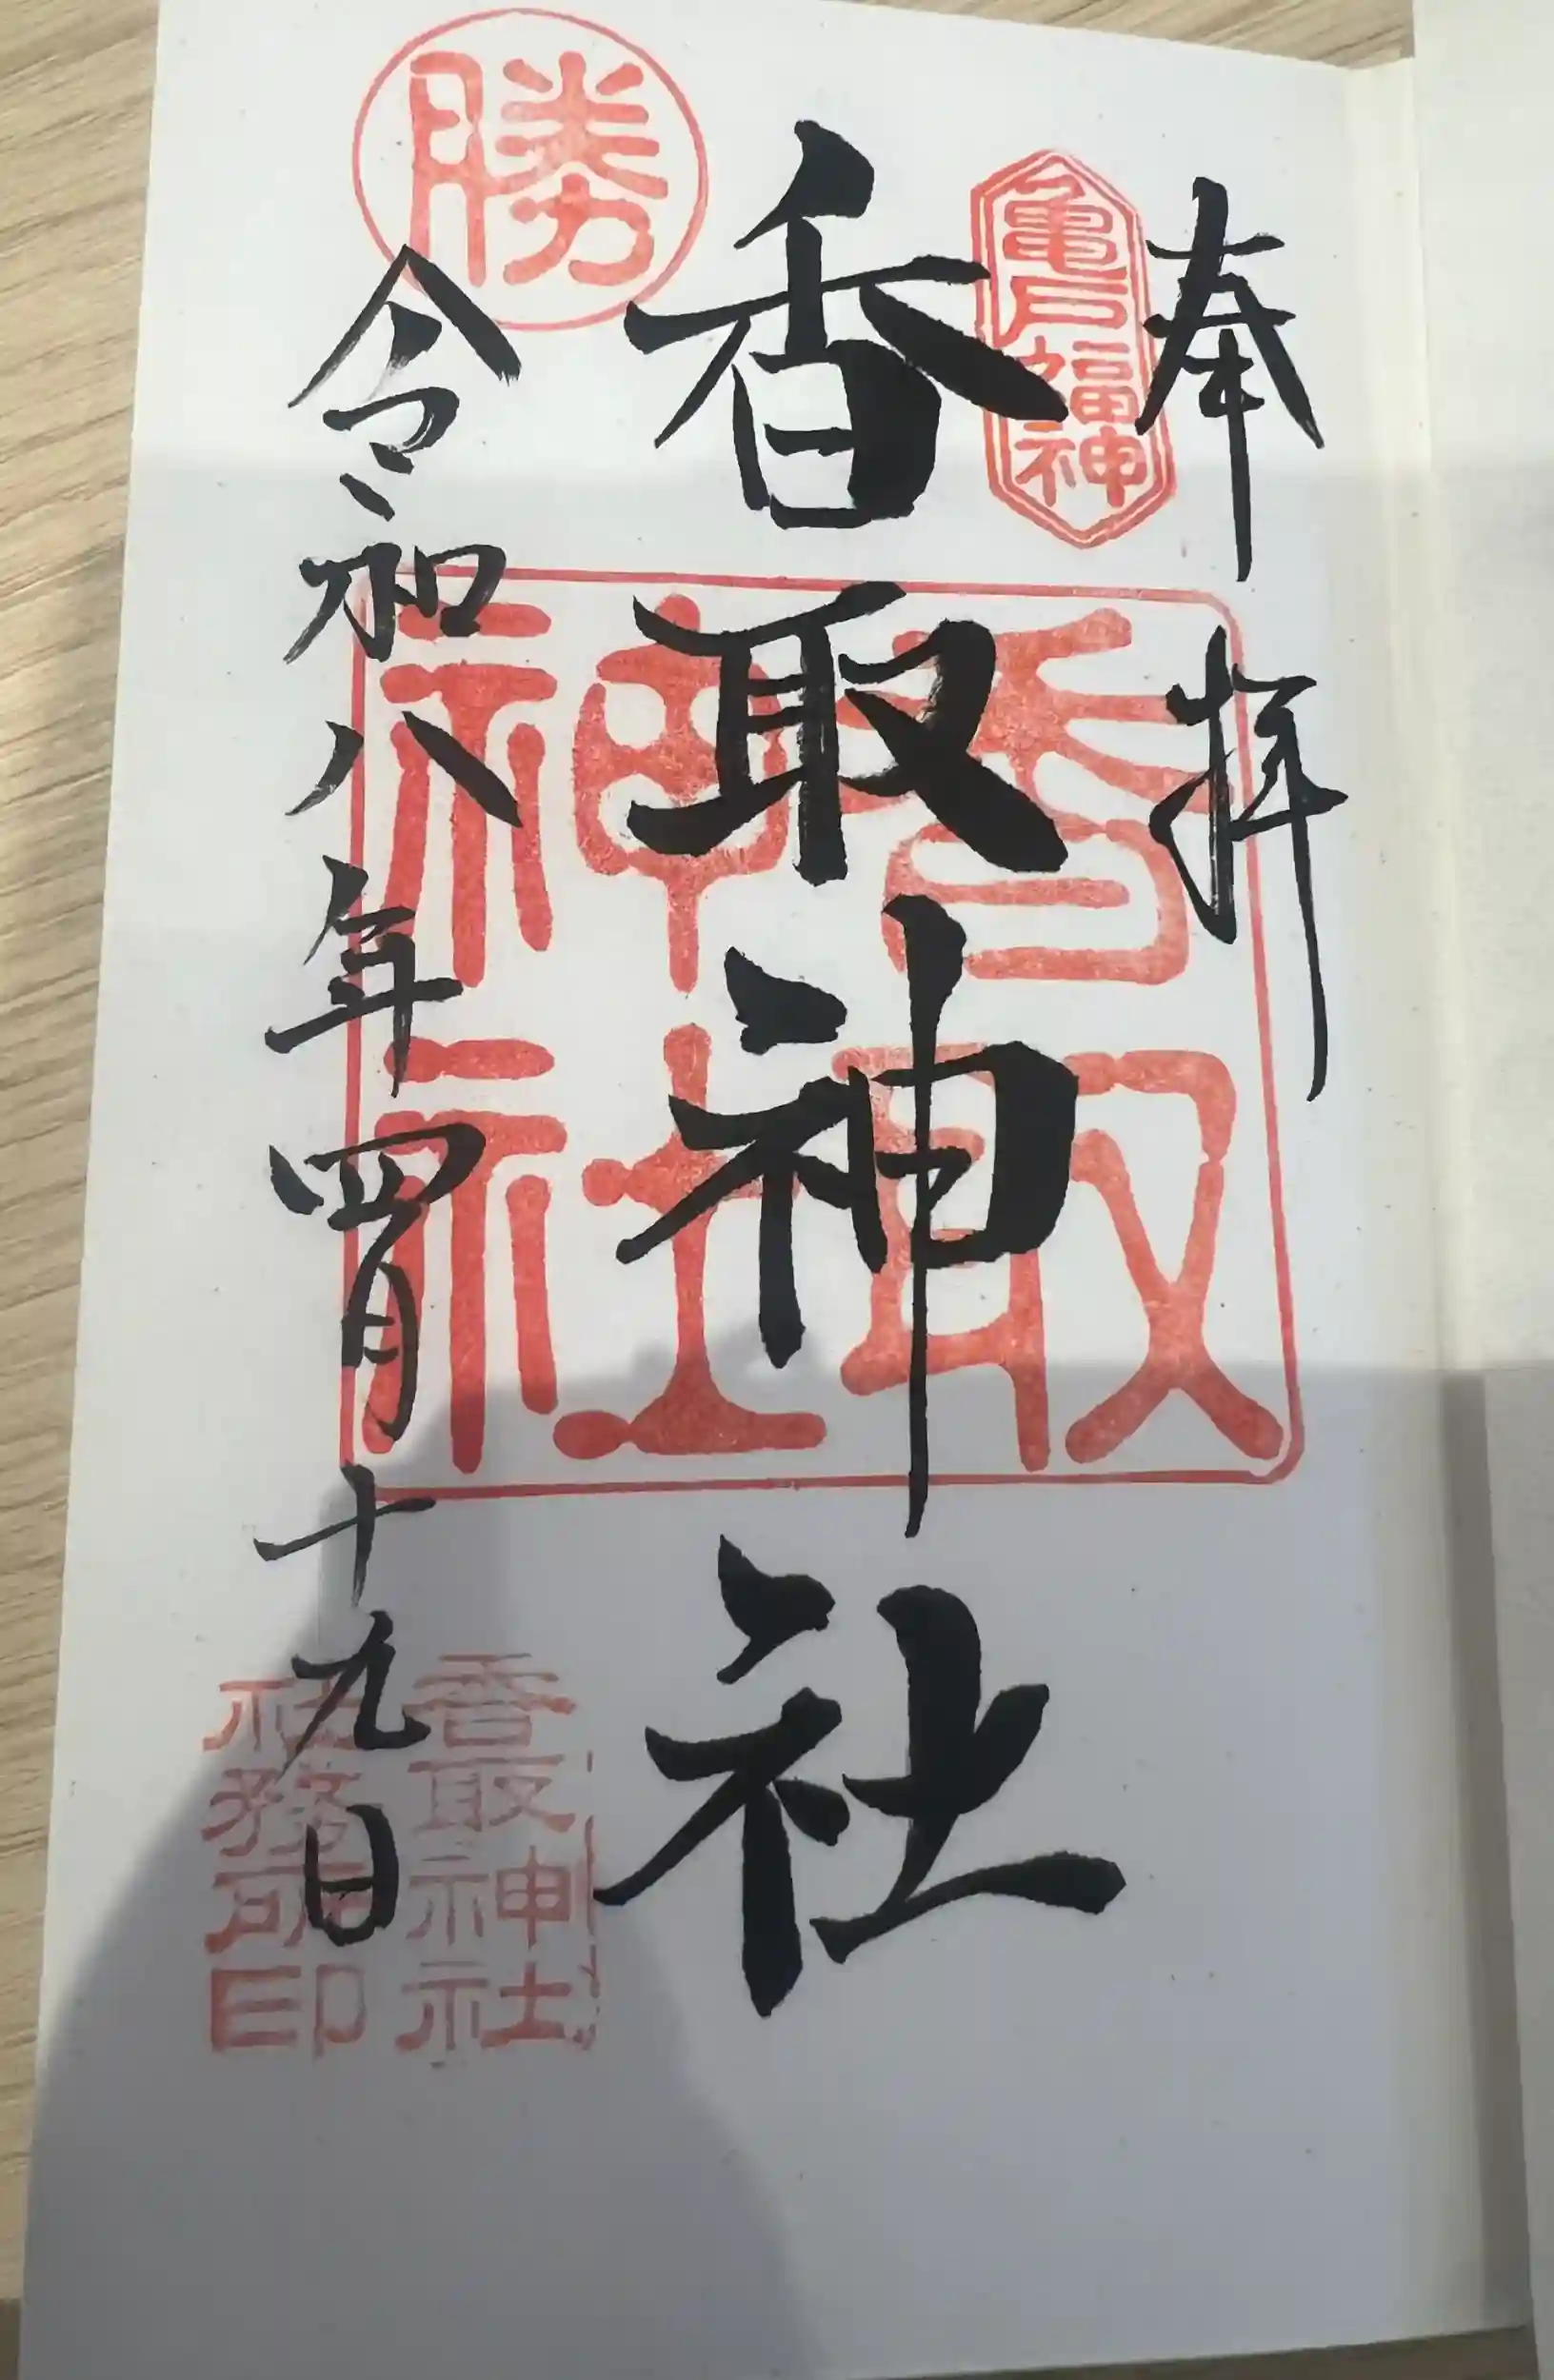 奉拝
亀戸
福神
香取神社
香取
神社
勝
令和八年四月十九日
香取神社
社務所印